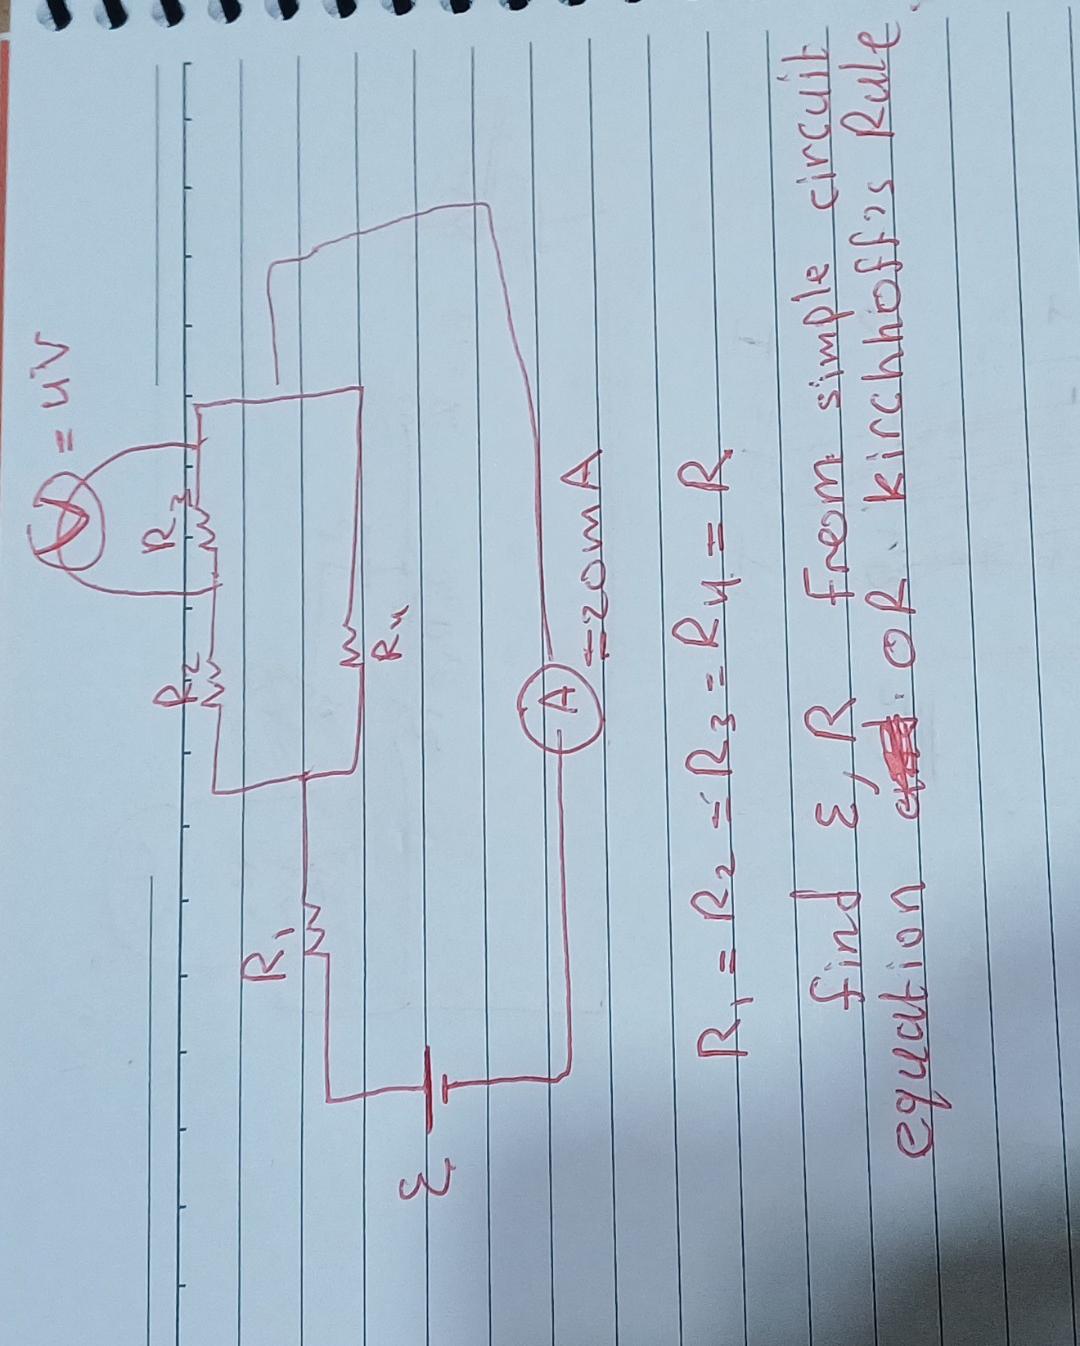 V = 4V
R2 R3
R1
R4
ε
A
=20mA
R1 = R2 = R3 = R4 = R
find ε, R from simple circuit
equation OR kirchhoff's Rule